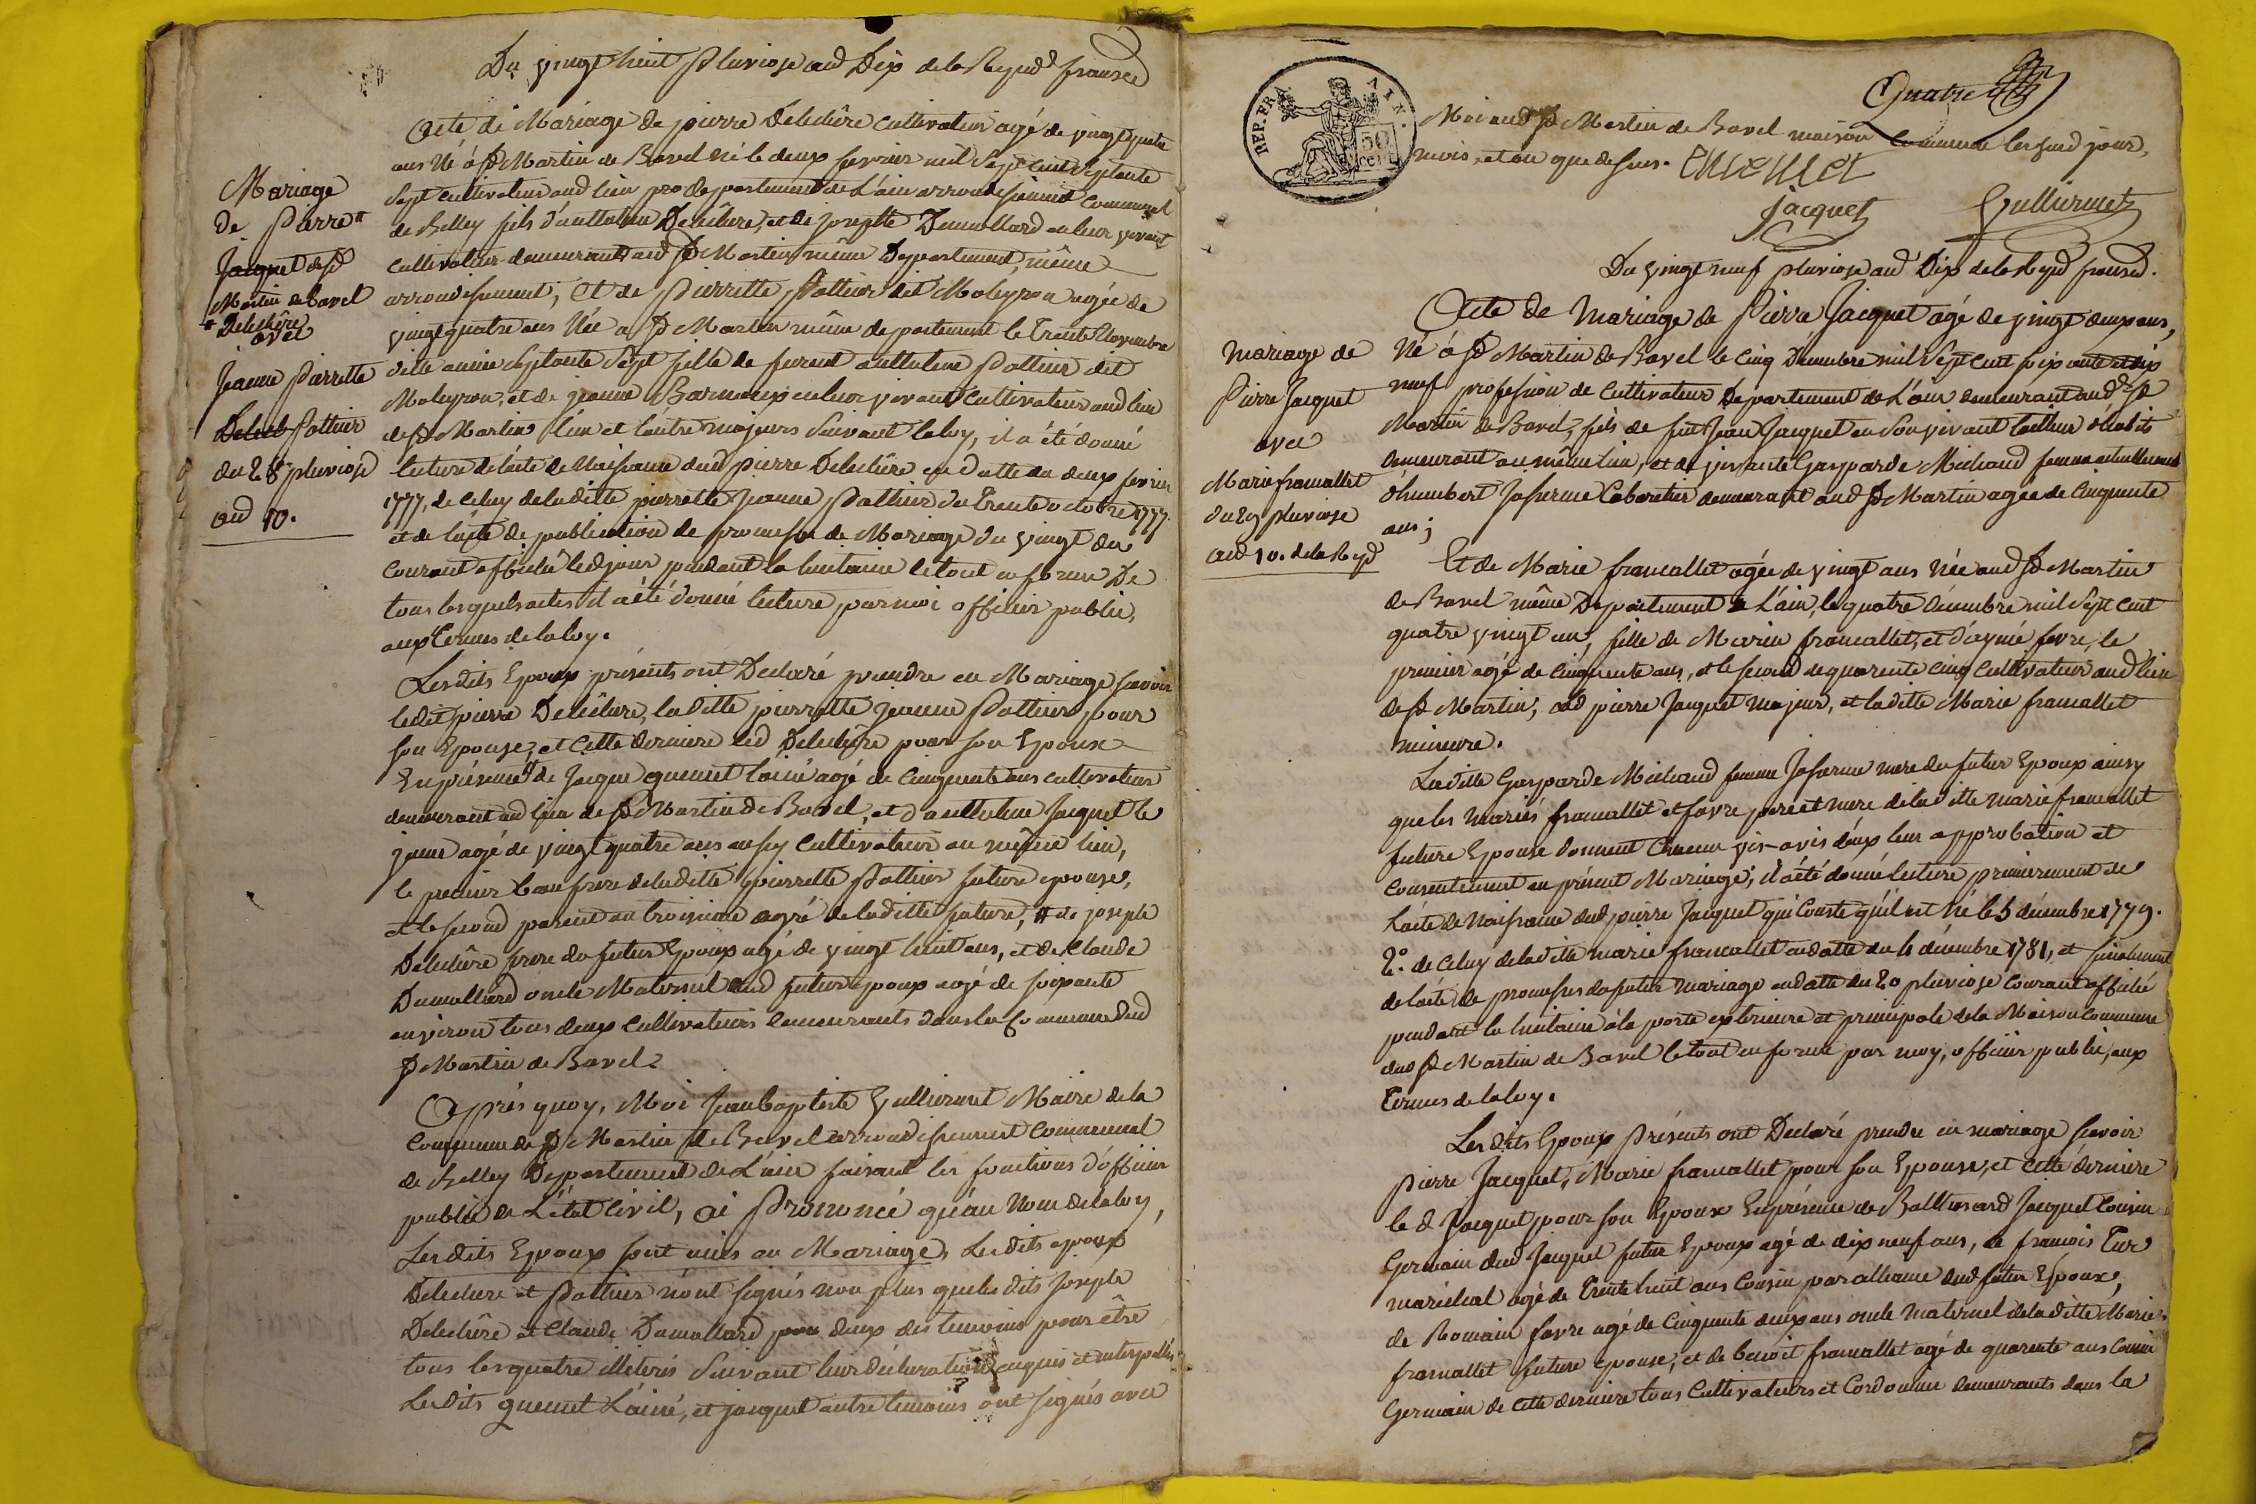 Du vingt huit pluviose and Dix de la Repud fransed
Mariage
de Pierre #
Jacquet de St
Martin de bavel
# Delechère
avec
Jeanne Pierrette
Pottier
du 28 pluviose
and 10.
Acte de Mariage de pierre Delechère cultivateur agé de vingt quatre
ans Né à St Martin de Bavel né le deux fevrier mil Sept cent Septante
Sept cultivateur aud lieu departement de L'ain arrondissement communal
de Belley fils d'anthelme Delechère, et de josephte Dumollard en leur vivant
cultivateur demeurant aud St Martin même Departement, même
arrondissement, Et de Pierrette Pottier dit Moleyron agée de
vingt quatre ans Née a St Martin même departement le Trente
ditte année Septante Sept fille de furent anthelme Pottier dit
Moleyron, et de jeanne en leur vivant Cultivateur aud lieu
de St Martin L'un et L'autre majeurs Suivant la loy, il a été donné
lecture de l'acte de Naissance dud pierre Delechère en datte du deux fevrier
1777, de celuy de laditte pierrette Jeanne Pottier du Trente octobre 1777
et de l'acte de publication de promesse de Mariage du vingt du
courant affiché led jour pendant la huitaine le tout en forme De
tous lesquels actes il a été donné lecture par moi officier public,
aux Termes de la loy.
Les dits Epoux présents ont Declaré prendre en Mariage savoir
ledit pierre Delechère, la ditte pierrette jeanne Pottier pour
son Epouse, et cette derniere led Delechère pour son Epoux
En présence de Jacque quenet l'ainé agé de cinquante ans cultivateur
demeurant aud lieu de St Martin de Bavel, et d'anthelme Jacquet le
jeune agé de vingt quatre ans aussy cultivateur au même lieu,
le premier beaufrere de laditte pierrette Pottier future epouse,
et le second parent au troisieme degré de laditte future, # de joseph
Delechère frere du futur Epoux agé de vingt huit ans, et de Claude
Dumollard oncle Maternel dud futur epoux agé de soixante
environ tous deux cultivateurs demeurants dans la Commune dud
St Martin de Bavel
Après quoy, Moi Jean baptiste Vulliermet Maire de la
Commune de St Martin de Bavel arrondissement Communal
de Belley Departement de L'ain faisant les fonctions d'officier
public de L'état Civil, ai Prononcé qu'au Nom de la loy,
Les dits Epoux sont unis en Mariage, Les dits epoux
Delechere et Pottier n'ont signés non plus que les dits Joseph
Delechère et Claude Dumollard deux des temoins pour être
tous les quatre illiterés Suivant leur déclaration enquis et interpellés
Les dits quenet L'ainé, et jacquet autre temoins ont signés avec
Quatre
REP. FRA. AIN.
50
cent
Moi aud St Martin de Bavel maison commune les sud jour,
mois, et an que dessus.
Jacquet
Vullierme
Du vingt neuf pluviose and Dix de la Repud fransed.
mariage de
Pierre Jacquet
avec
Marie framallet
du 29 pluviose
and 10. de la Repd
Acte de Mariage de Pierre Jacquet agé de vingt deux ans,
Né à St Martin de Bavel le cinq Décembre mil Sept cent soixante et dix
neuf profession de cultivateur Departement de L'ain demeurant aud St
Martin de Bavel, fils de fut Jean Jacquet en Son vivant tailleur d'habits
demeurant au même lieu, et de vivante Gasparde Michaud femme actuellement
d'humbert Joserme Cabaretier demeurant aud St Martin agée de Cinquante
ans;
Et de Marie framallet agée de vingt ans Née aud St Martin
de Bavel même Departement de L'ain, le quatre décembre mil Sept cent
quatre vingt un, fille de Marin framallet, et d'aymé favre, le
premier agé de cinquante ans, et le second de quarente cinq Cultivateur aud lieu
de St Martin, led pierre Jacquet majeur, et laditte Marie framallet
mineure.
Laditte Gasparde Michaud femme Joserme mere du futur Epoux ainsy
que les Mariés framallet et favre pere et mere de laditte marie framallet
future Epouse donnent Chacun vis-avis d'eux leur approbation et
consentement au présent Mariage, il a été donné lecture premierement de
L'acte de Naissance dud pierre Jacquet qui Conste qu'il est né le 5 décembre 1779.
2°. de Celuy de laditte marie framallet en datte du 4 décembre 1781, et finalement
de l'acte de promesses du futur mariage en datte du 20 pluviose Courant affiché
pendant la huitaine à la porte exterieure et principale de la Maison Commune
dud St Martin de Bavel le tout en forme par moy, officier public, aux
Termes de la loy.
Les dits Epoux Présents ont Declaré prendre en mariage savoir
pierre Jacquet, Marie framallet pour son Epouse, et cette derniere
le d Jacquet pour son Epoux En présence de Balthesard Jacquet Cousin
Germain dud Jacquet futur Epoux agé de dix neuf ans, de francois Tur
maréchal agé de Trente huit ans Cousin par alliance dud futur Epoux,
de Romain favre agé de Cinquante deux ans oncle maternel de laditte Marie
framallet future epouse, et de benoit framallet agé de quarente ans Cousin
Germain de cette derniere tous Cultivateurs et Cordonnier demeurants dans la